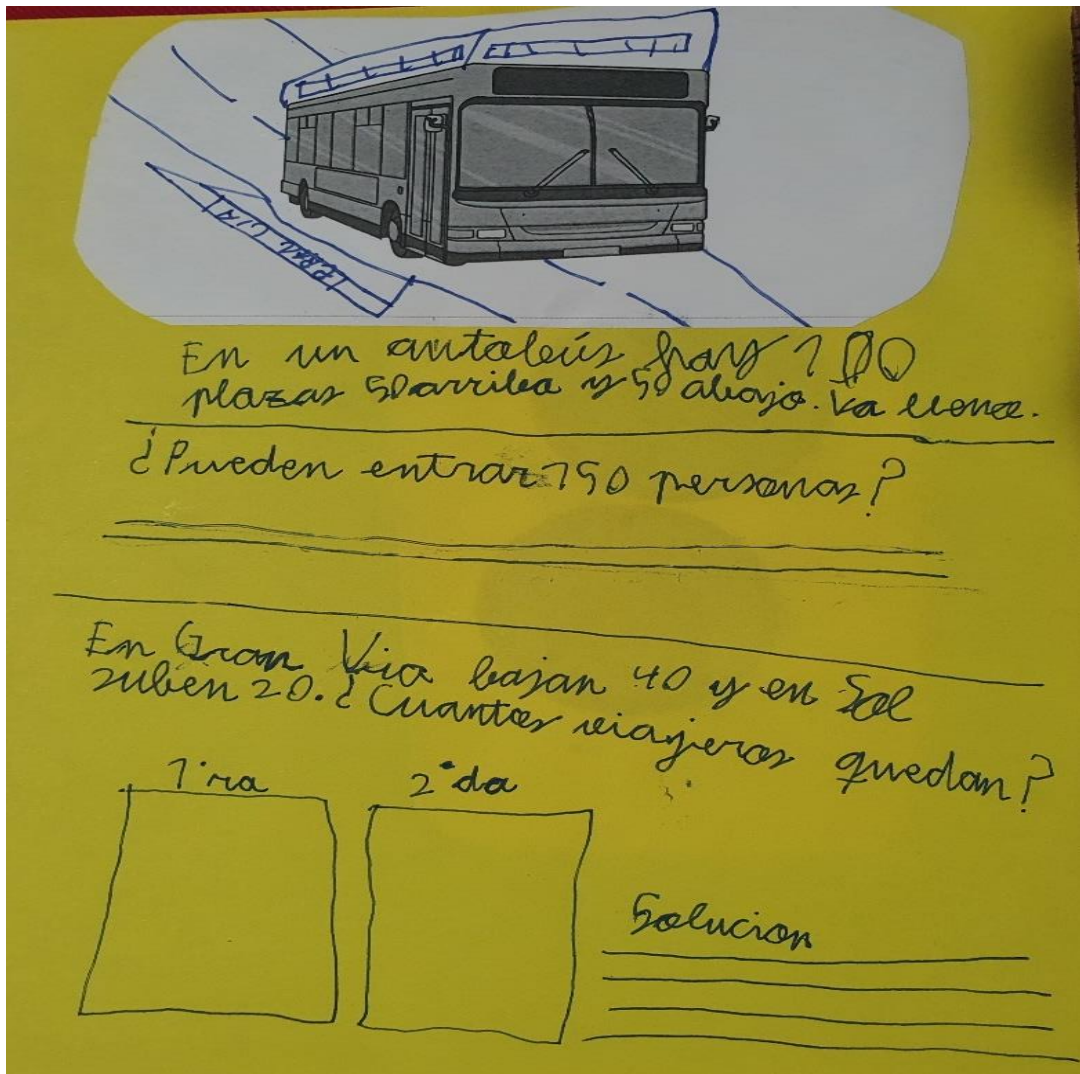 En un autobús hay 100
plazas 50 arriba y 50 abajo. Va lleno.
¿Pueden entrar 150 personas?
En Gran Via bajan 40 y en Sol
suben 20. ¿Cuantos viajeros quedan?
1ºra
2ºda
Solucion